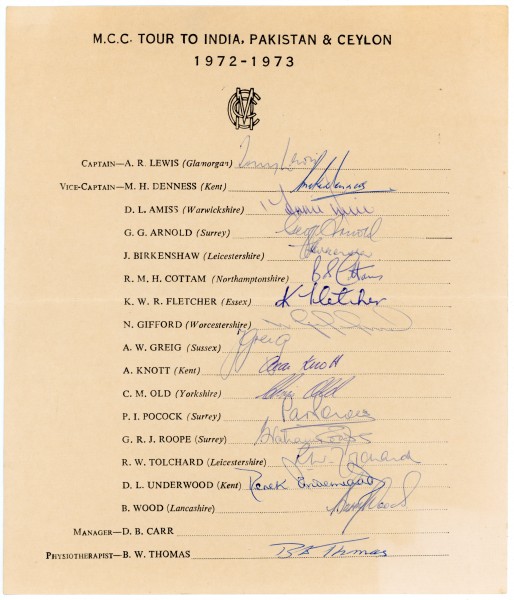 M.C.C. TOUR TO INDIA, PAKISTAN & CEYLON
1972-1973
MCC
CAPTAIN—A. R. LEWIS (Glamorgan) Tony Lewis
VICE-CAPTAIN—M. H. DENNESS (Kent) Mike Denness
D. L. AMISS (Warwickshire)
G. G. ARNOLD (Surrey) Geoff Arnold
J. BIRKENSHAW (Leicestershire)
R. M. H. COTTAM (Northamptonshire) Bob Cottam
K. W. R. FLETCHER (Essex) K Fletcher
N. GIFFORD (Worcestershire)
A. W. GREIG (Sussex) Greig
A. KNOTT (Kent) Alan Knott
C. M. OLD (Yorkshire) Chris Old
P. I. POCOCK (Surrey) Pat Pocock
G. R. J. ROOPE (Surrey) Graham Roope
R. W. TOLCHARD (Leicestershire) R. W. Tolchard
D. L. UNDERWOOD (Kent) Derek Underwood
B. WOOD (Lancashire) Barry Wood
MANAGER—D. B. CARR
PHYSIOTHERAPIST—B. W. THOMAS Thomas